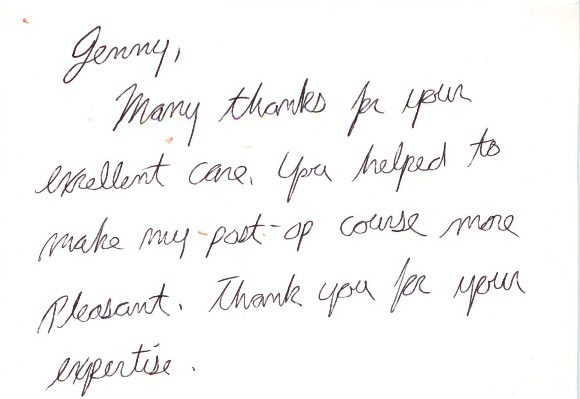 Jenny,
Many thanks for your
excellent care. You helped to
make my post-op course more
pleasant. Thank you for your
expertise.